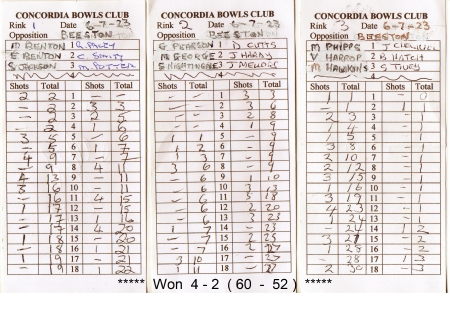 CONCORDIA BOWLS CLUB
Rink 1 Date 6-7-23
Opposition BEESTON
M RENTON 1 R PAILEY
E RENTON 2 C SMITH
S JACKSON 3 M POTTER
4
Shots Total Shots Total
2 2 1 - -
- 2 2 3 3
- 2 3 2 5
- 2 4 1 6
3 5 5 - 6
- 5 6 1 7
4 9 7 - 7
- 9 8 4 11
4 13 9 - 11
3 16 10 - 11
- 16 11 4 15
1 17 12 - 15
- 17 13 1 16
- 17 14 4 20
1 18 15 - 20
- 18 16 1 21
1 19 17 - 21
- 19 18 1 22
CONCORDIA BOWLS CLUB
Rink 2 Date 6-7-23
Opposition BEESTON
G PEARSON 1 D CUTTS
M GEORGE 2 J HARDY
S NIGHTINGALE 3 J MELLORS
4
Shots Total Shots Total
- - 1 3 3
- - 2 3 6
- - 3 2 8
- - 4 1 9
1 1 5 - 9
1 2 6 - 9
1 3 7 - 9
3 6 8 - 9
- 6 9 1 10
- 6 10 3 13
- 6 11 5 18
- 6 12 2 20
- 6 13 3 23
1 7 14 - 23
- 7 15 2 25
- 7 16 2 27
3 10 17 - 27
1 11 18 - 27
CONCORDIA BOWLS CLUB
Rink 3 Date 6-7-23
Opposition BEESTON
M PHIPPS 1 J
V HARROP 2 B HATCH
M HAWKINS 3 S TIVEY
4
Shots Total Shots Total
1 1 1 - 0
- 1 2 1 1
2 3 3 - 1
1 4 4 - 1
1 5 5 - 1
3 8 6 - 1
2 10 7 - 1
2 12 8 - 1
3 15 9 - 1
1 16 10 - 1
3 19 11 - 1
4 23 12 - 1
1 24 13 - 1
- 24 14 1 2
3 27 15 - 2
1 28 16 - 2
- 28 17 1 3
2 30 18 - 3
***** Won 4 - 2 ( 60 - 52 ) *****